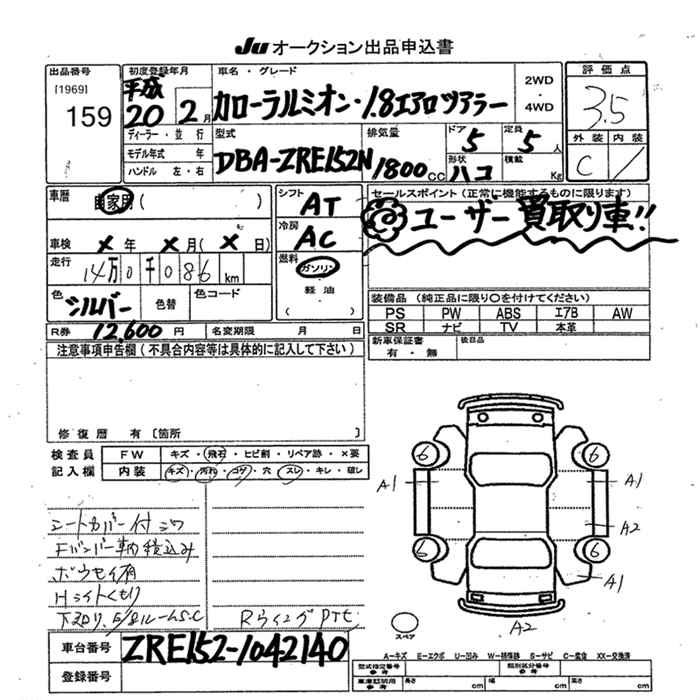 Ju オークション出品申込書
出品番号
[1969]
159
初度登録年月
平成
20年 2月
ディーラー・並行
モデル年式 年
ハンドル 左・右
車名・グレード
カローラルミオン・1.8エアロツアラー
2WD
4WD
型式
DBA-ZRE152N
排気量
1800cc
ドア 5
定員 5人
形状 ハコ
積載 Kg
評価点
3.5
外装 内装
C
車歴
自家用( )
車検 × 年 × 月( × 日)
走行
14万0千086km
色 シルバー
色替
色コード
R券 12,600 円
名変期限 月 日
シフト
AT
冷房
AC
燃料
ガソリン
軽油
( )
セールスポイント(正常に機能するものに限ります)
ユーザー買取り車!!
装備品(純正品に限り○を付けてください)
PS PW ABS エアB AW
SR ナビ TV 本革
新車保証書
有・無
後日品
注意事項申告欄(不具合内容等は具体的に記入して下さい)
修復歴 有〔箇所
検査員
記入欄
FW キズ・飛石・ヒビ割・リペア跡・×要
内装 キズ・汚れ・コゲ・穴・スレ・キレ・破レ
シートカバー付
Fバンパー車内積込み
Hライトくもり
ZRE152-1042140
車台番号
登録番号
6
6
A1
A1
A2
6
6
A1
A2
スペア
A-キズ E-エクボ U-凹み W-補修跡 S-サビ C-腐食 XX-交換済
型式指定番号
参考
類別区分番号
参考
車庫証明用
参考
長さ cm
幅 cm
高さ cm